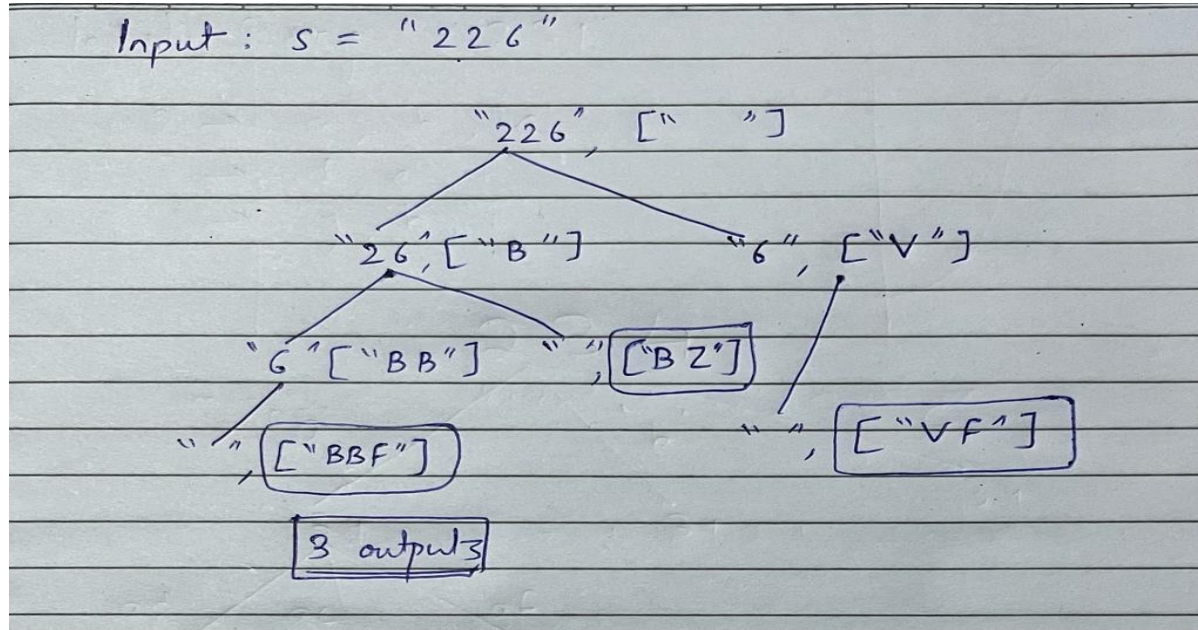 Input : S = "226"
"226", [" "]
"26", ["B"] "6", ["V"]
"6" ["BB"] " ", ["BZ"]
" ", ["BBF"] " ", ["VF"]
3 outputs